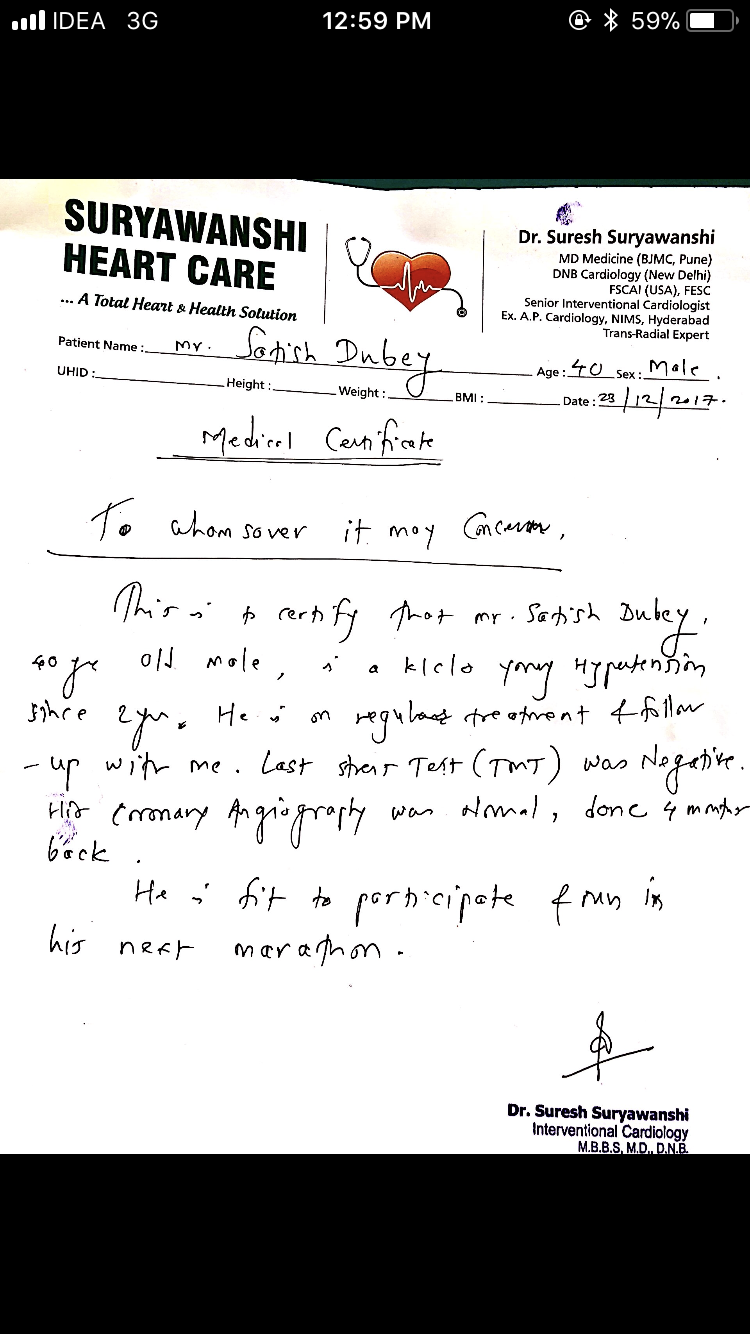 IDEA 3G 12:59 PM 59%
SURYAWANSHI
HEART CARE
... A Total Heart & Health Solution
Dr. Suresh Suryawanshi
MD Medicine (BJMC, Pune)
DNB Cardiology (New Delhi)
FSCAI (USA), FESC
Senior Interventional Cardiologist
Ex. A.P. Cardiology, NIMS, Hyderabad
Trans-Radial Expert
Patient Name : Mr. Satish Dubey Age : 40 Sex : Male.
UHID : Height : Weight : BMI : Date : 23/12/2017.
Medical Certificate
To whomsover it may Concern,
This is to certify that Mr. Satish Dubey,
40 yr old male, is a k/c/o young Hypertension
since 2 yr. He is on regular treatment & follow
-up with me. Last stress Test (TMT) was Negative.
His Coronary Angiography was Normal, done 4 months
back.
He is fit to participate & run in
his next marathon.
Dr. Suresh Suryawanshi
Interventional Cardiology
M.B.B.S, M.D., D.N.B.